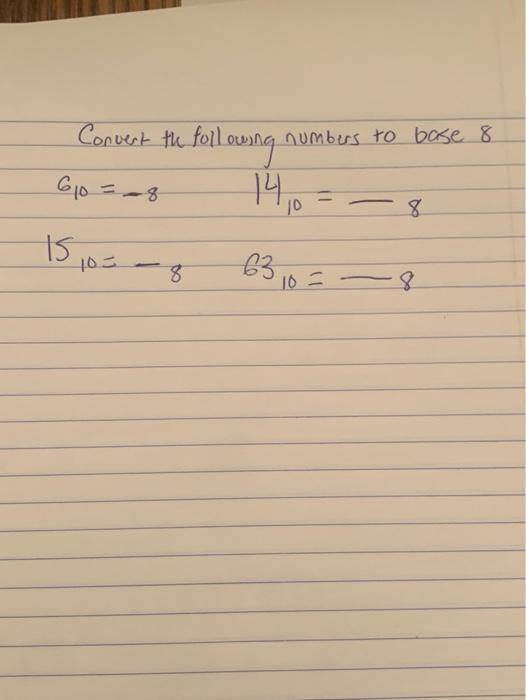 Convert the following numbers to base 8
6₁₀ = _₈ 14₁₀ = _₈
15₁₀ = _₈ 63₁₀ = _₈